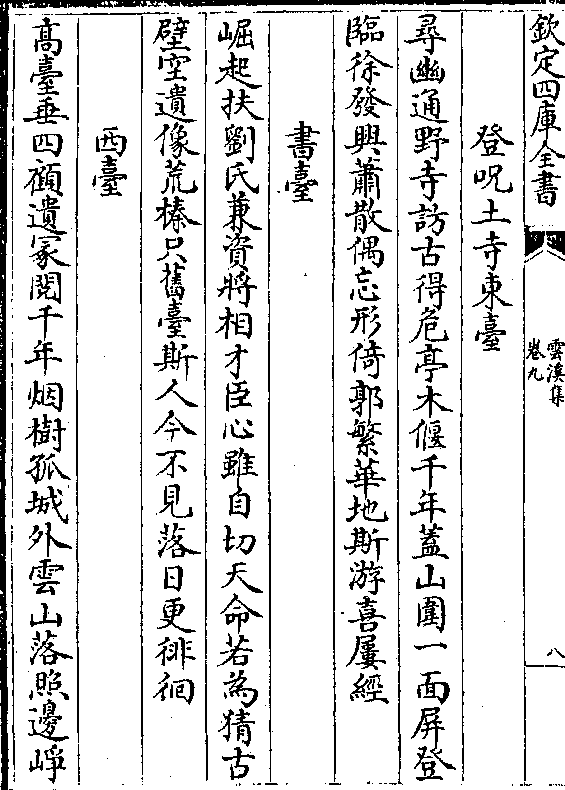 欽定四庫全書
雲溪集
卷九
八
登呪土寺東臺
尋幽通野寺訪古得危亭木偃千年蓋山圍一面屏登
臨徐發興蕭散偶忘形倚郭繁華地斯游喜屢經
書臺
崛起扶劉氏兼資將相才臣心雖自切天命若為猜古
壁空遺像荒榛只舊臺斯人今不見落日更徘徊
西臺
高臺垂四顧遺冢閱千年烟樹孤城外雲山落照邊崢